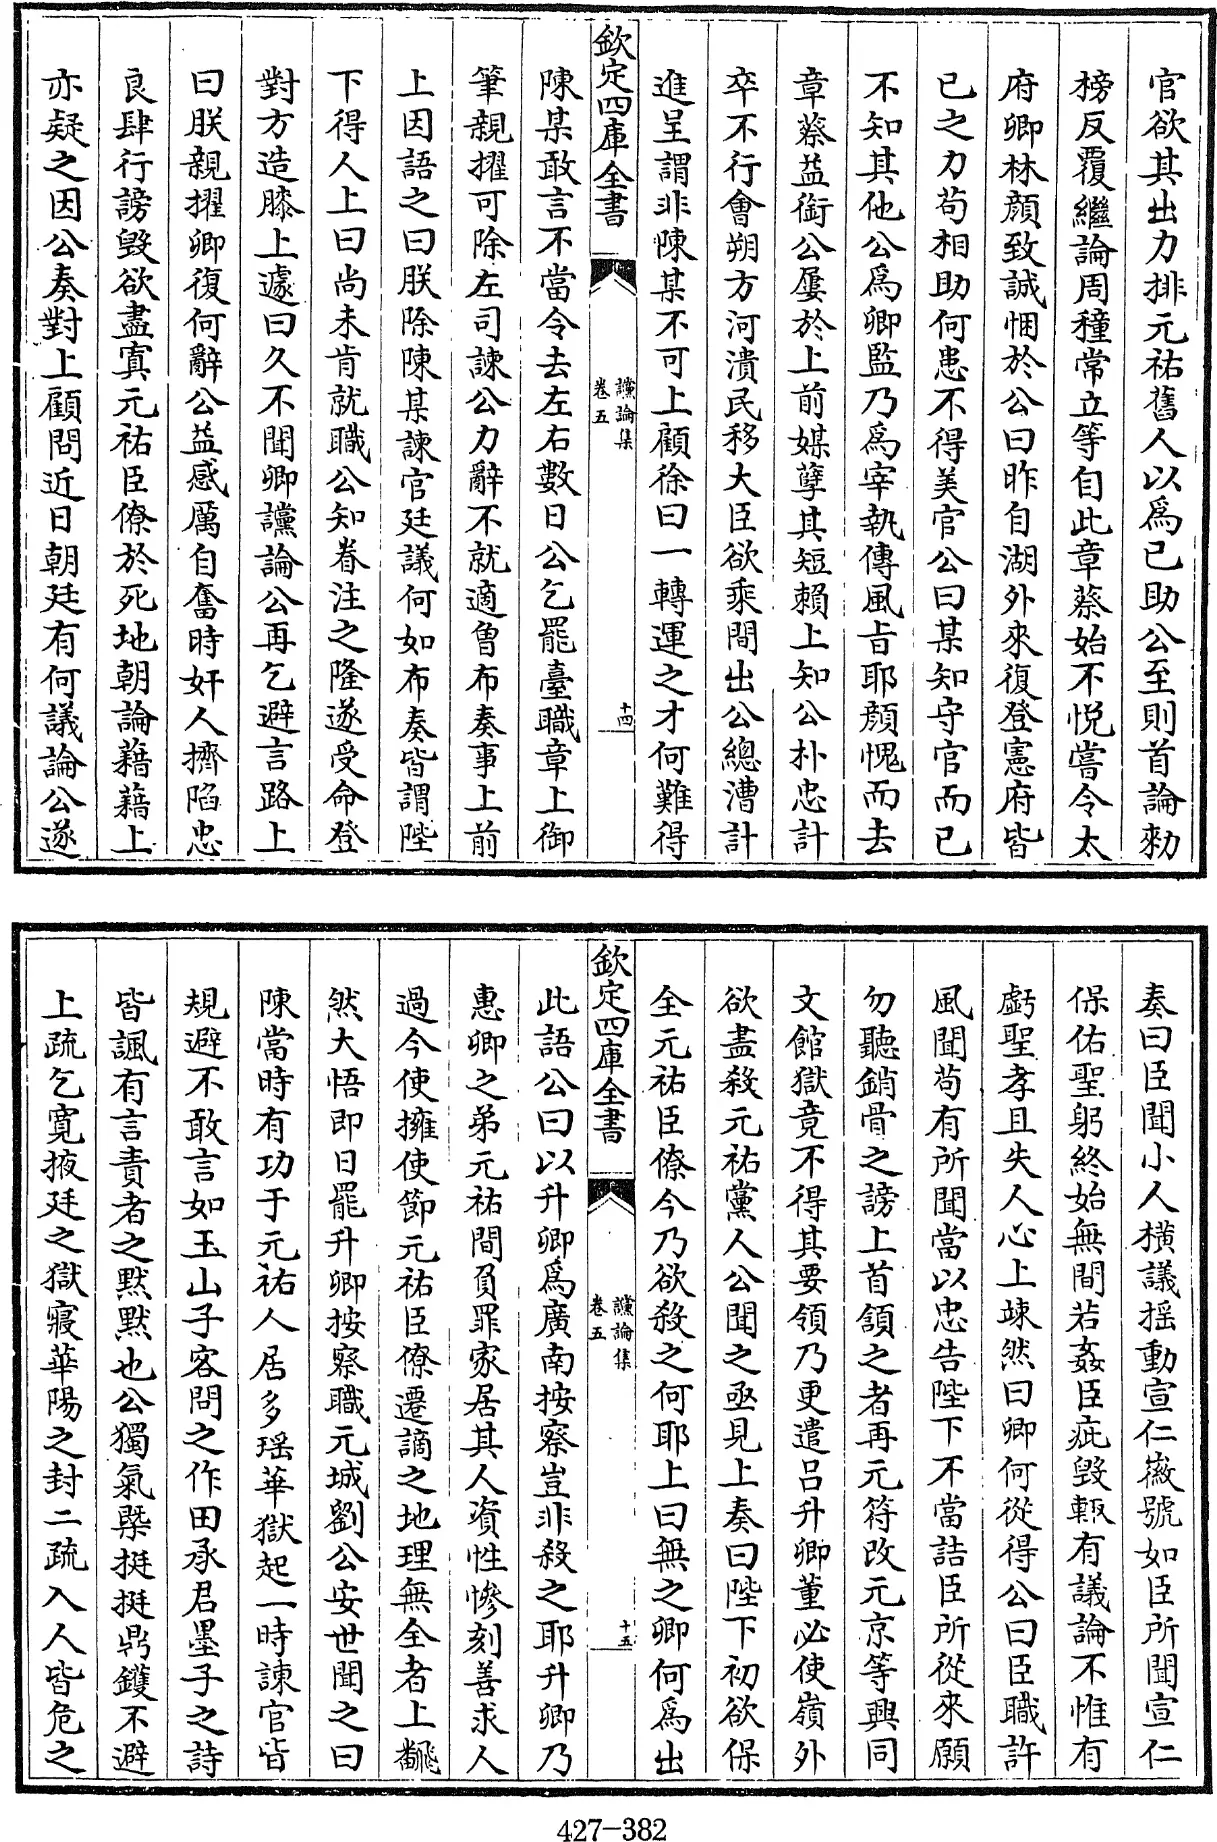 官欲其出力排元祐舊人以爲已助公至則首論勑
榜反覆繼論周穜常立等自此章蔡始不悦嘗令太
府卿林顔致誠悃於公曰昨自湖外來復登憲府皆
已之力苟相助何患不得美官公曰某知守官而已
不知其他公爲卿監乃爲宰執傳風㫖耶顔愧而去
章蔡益銜公屢於上前媒孽其短賴上知公朴忠計
卒不行會朔方河潰民移大臣欲乘間出公總漕計
進呈謂非陳某不可上顧徐曰一轉運之才何難得
欽定四庫全書
讜論集
卷五
十四
陳某敢言不當令去左右數日公乞罷臺職章上御
筆親擢可除左司諫公力辭不就適曾布奏事上前
上因語之曰朕除陳某諫官廷議何如布奏皆謂陛
下得人上曰尚未肯就職公知眷注之隆遂受命登
對方造膝上遽曰久不聞卿讜論公再乞避言路上
曰朕親擢卿復何辭公益感厲自奮時奸人擠陷忠
良肆行謗毁欲盡寘元祐臣僚於死地朝論藉藉上
亦疑之因公奏對上顧問近日朝廷有何議論公遂
奏曰臣聞小人横議摇動宣仁徽號如臣所聞宣仁
保佑聖躬終始無間若姦臣疵毁輒有議論不惟有
虧聖孝且失人心上竦然曰卿何從得公曰臣職許
風聞苟有所聞當以忠告陛下不當詰臣所從來願
勿聽銷骨之謗上首頷之者再元符改元京等興同
文館獄竟不得其要領乃更遣吕升卿董必使嶺外
欲盡殺元祐黨人公聞之亟見上奏曰陛下初欲保
全元祐臣僚今乃欲殺之何耶上曰無之卿何爲出
欽定四庫全書
讜論集
卷五
十五
此語公曰以升卿爲廣南按察豈非殺之耶升卿乃
惠卿之弟元祐間負罪家居其人資性慘刻善求人
過今使擁使節元祐臣僚遷謫之地理無全者上飜
然大悟即日罷升卿按察職元城劉公安世聞之曰
陳當時有功于元祐人居多瑶華獄起一時諫官皆
規避不敢言如玉山子容問之作田承君墨子之詩
皆諷有言責者之默默也公獨氣槩挺挺鼎鑊不避
上疏乞寛掖廷之獄寢華陽之封二疏入人皆危之
427-382